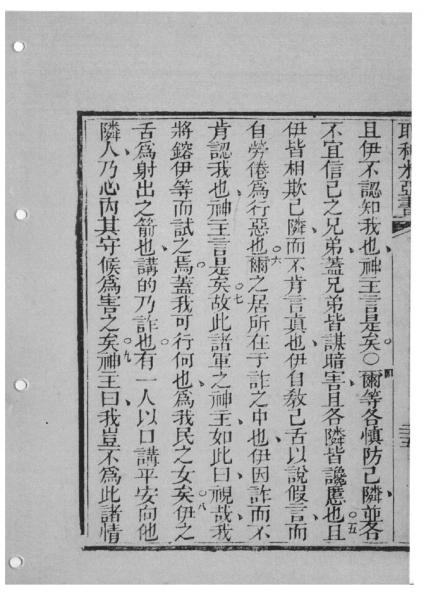 耶利米亞書
且伊不認知我也神王言是矣○四爾等各慎防己隣並各
不宜信己之兄弟蓋兄弟皆謀暗害且各隣皆讒慝也○五且
伊皆相欺己隣而不肯言真也伊自教己舌以說假言而
自勞倦為行惡也○六爾之居所在于詐之中也伊因詐而不
肯認我也神王言是矣○七故此諸軍之神王如此曰視哉我
將鎔伊等而試之焉蓋我可行何也為我民之女矣○八伊之
舌為射出之箭也講的乃詐也有一人以口講平安向他
隣人乃心內其守候為害之矣○九神王曰我豈不為此諸情